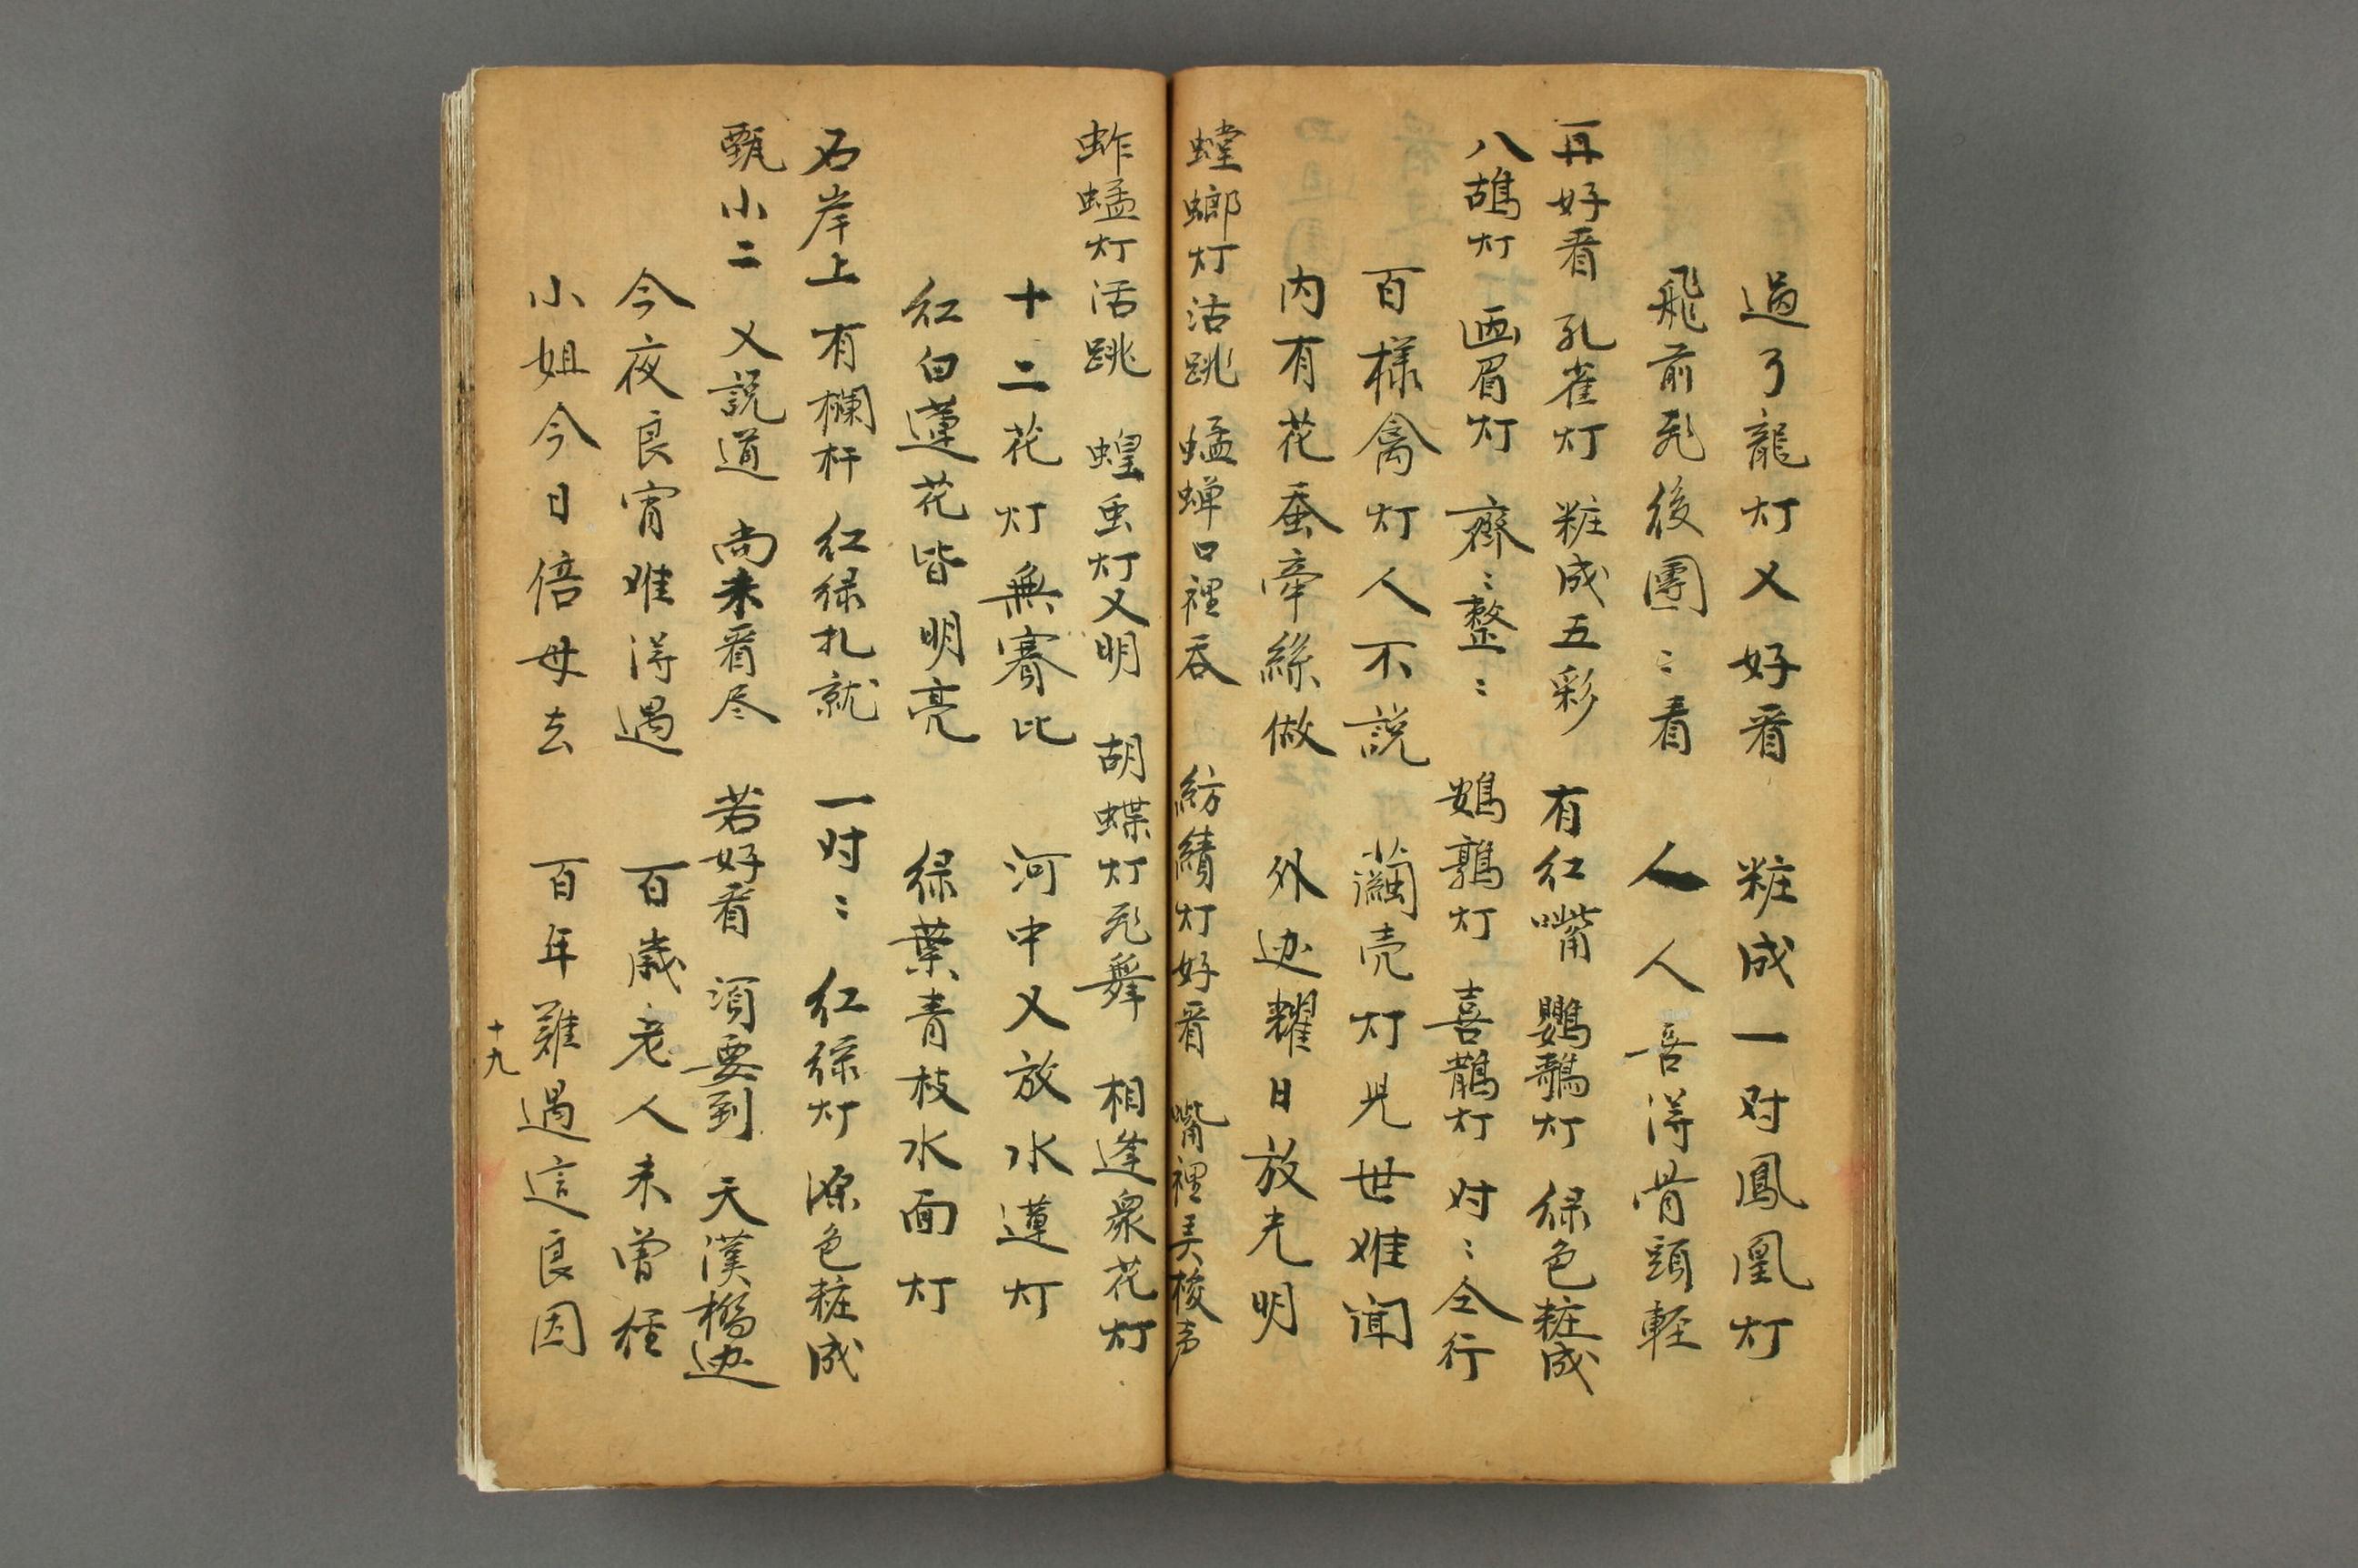 過了龍灯又好看 粧成一对鳳凰灯
飛前飛後團〻看 人人喜得骨頭輕
再好看 孔雀灯 粧成五彩 有红嘴 鸚鵡灯 绿色粧成
八鴣灯 画眉灯 齊〻整〻 鵪鶉灯 喜鵲灯 对〻仝行
百樣禽灯人不説 繭壳灯児世难闻
内有花蚕牽絲做 外边耀日放光明
螳螂灯活跳 蜢蟬口裡吞 紡績灯好看 嘴裡弄梭声
蚱蜢灯活跳 蝗虫灯又明 胡蝶灯飛舞 相逢衆花灯
十二花灯無賽比 河中又放水蓮灯
红白蓮花皆明亮 绿葉青枝水面灯
石岸上 有欄杆 红绿扎就 一对〻 红绿灯 源色粧成
甄小二 又説道 尚未看尽 若好看 須要到 天漢橋边
今夜良宵难得遇 百歲老人未曾经
小姐今日倍母去 百年難遇這良因
十九